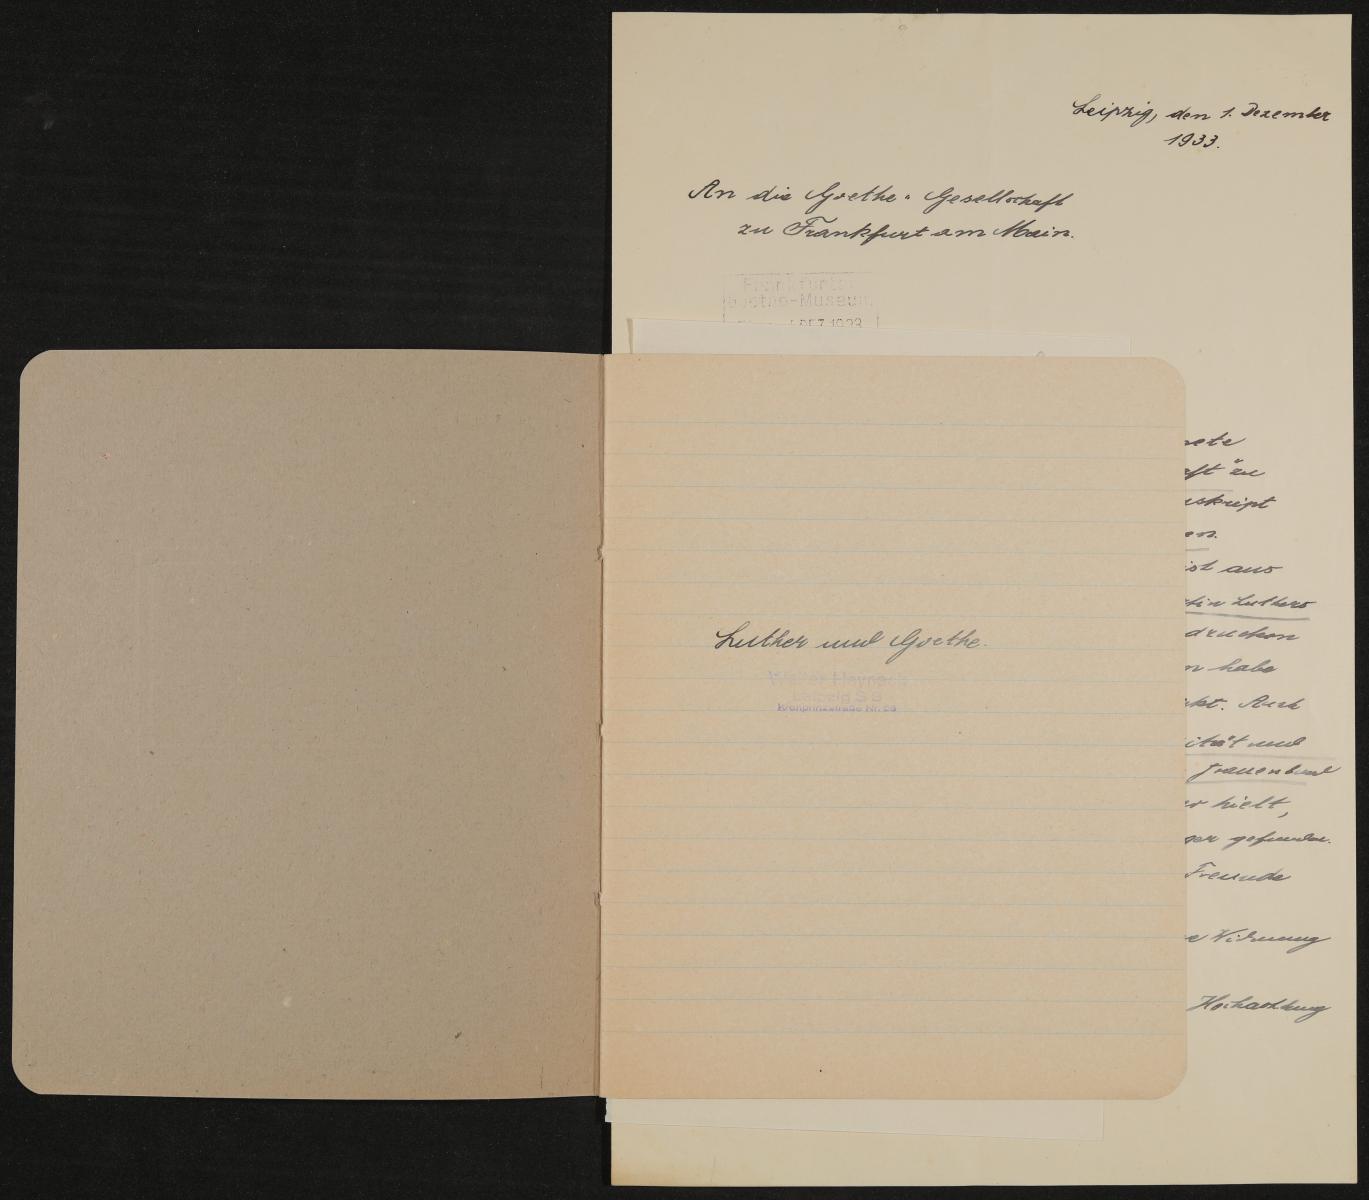 Leipzig, den 1. Dezember
1933.
An die Goethe-Gesellschaft
zu Frankfurt am Main.
Frankfurter
Goethe-Museum
DEZ 1933
nete
aft" zu
uskript
en.
ist aus
tin Luthers
drucken
n habe
kt. Auch
ität und
Frauenbund
er hielt,
ger gefunden.
Freunde
e Widmung
Hochachtung
Luther und Goethe.
Walter Heynack
Leipzig S 3
Kronprinzstraße Nr.